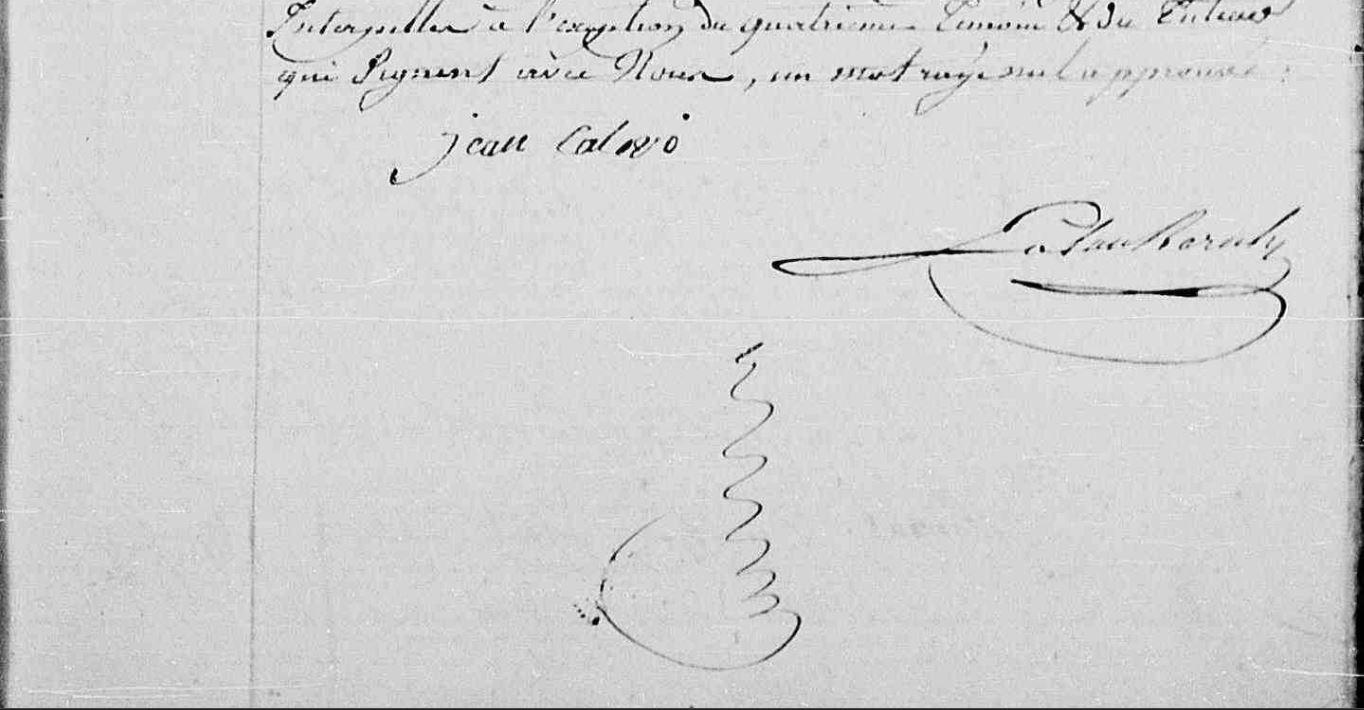 Interpellés à l'exception du quatrieme Temoin & du Tuteur
qui Signent avec Nous, un mot rayé nul approuvé.
jean Calvo